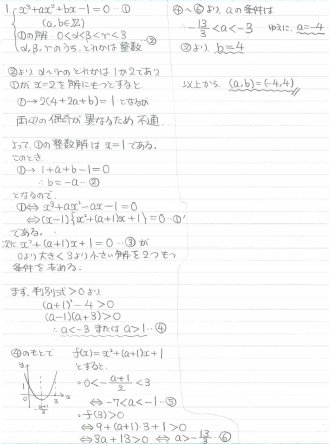 1. { x³+ax²+bx-1=0 …①
(a,b∈ℤ)
①の解 0<α<β<γ<3
α,β,γのうち、どれかは整数 …②
②より α〜γのどれかは 1か2であり
①が x=2を解にもつとすると
①→ 2(4+2a+b)=1 となるが
両辺の偶奇が異なるため不適
よって、①の整数解は x=1である。
このとき、
①→ 1+a+b-1=0
∴b=-a …②
となるので
①⇔ x³+ax²-ax-1=0
⇔(x-1){x²+(a+1)x+1}=0 …①'
である。
次に x²+(a+1)x+1=0 …③が
0より大きく3より小さい解を2つもつ
条件を求める。
まず、判別式>0より
(a+1)²-4>0
(a-1)(a+3)>0
∴a<-3 または a>1 …④
④のもとで f(x)=x²+(a+1)x+1
とすると、
・0<-\frac{a+1}{2}<3
⇔ -7<a<-1 …⑤
・f(3)>0
⇔9+(a+1)・3+1>0
⇔3a+13>0 ⇔ a>-\frac{13}{3} …⑥
y
0
1
3
x
-\frac{a+1}{2}
④〜⑥より、aの条件は
-\frac{13}{3}<a<-3 ゆえに、a=-4
②より、b=4
以上から、(a,b)=(-4,4)